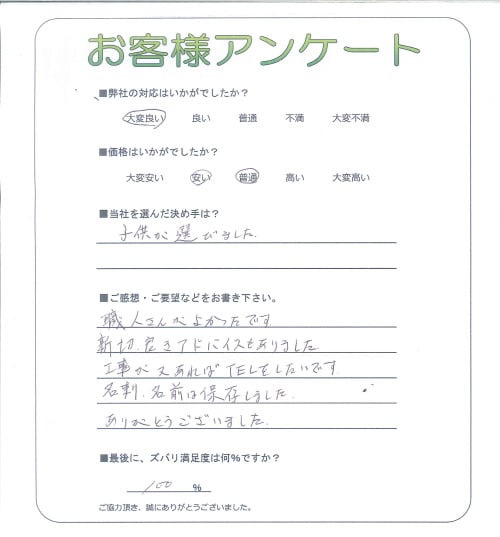 お客様アンケート
■弊社の対応はいかがでしたか？
大変良い 良い 普通 不満 大変不満
■価格はいかがでしたか？
大変安い 安い 普通 高い 大変高い
■当社を選んだ決め手は？
子供が選びました。
■ご感想・ご要望などをお書き下さい。
職人さんがよかったです
新切、良きアドバイスもありました
工事が又あればTELをしたいです。
名刺、名前は保存しました。
ありがとうございました。
■最後に、ズバリ満足度は何%ですか？
100 %
ご協力頂き、誠にありがとうございました。